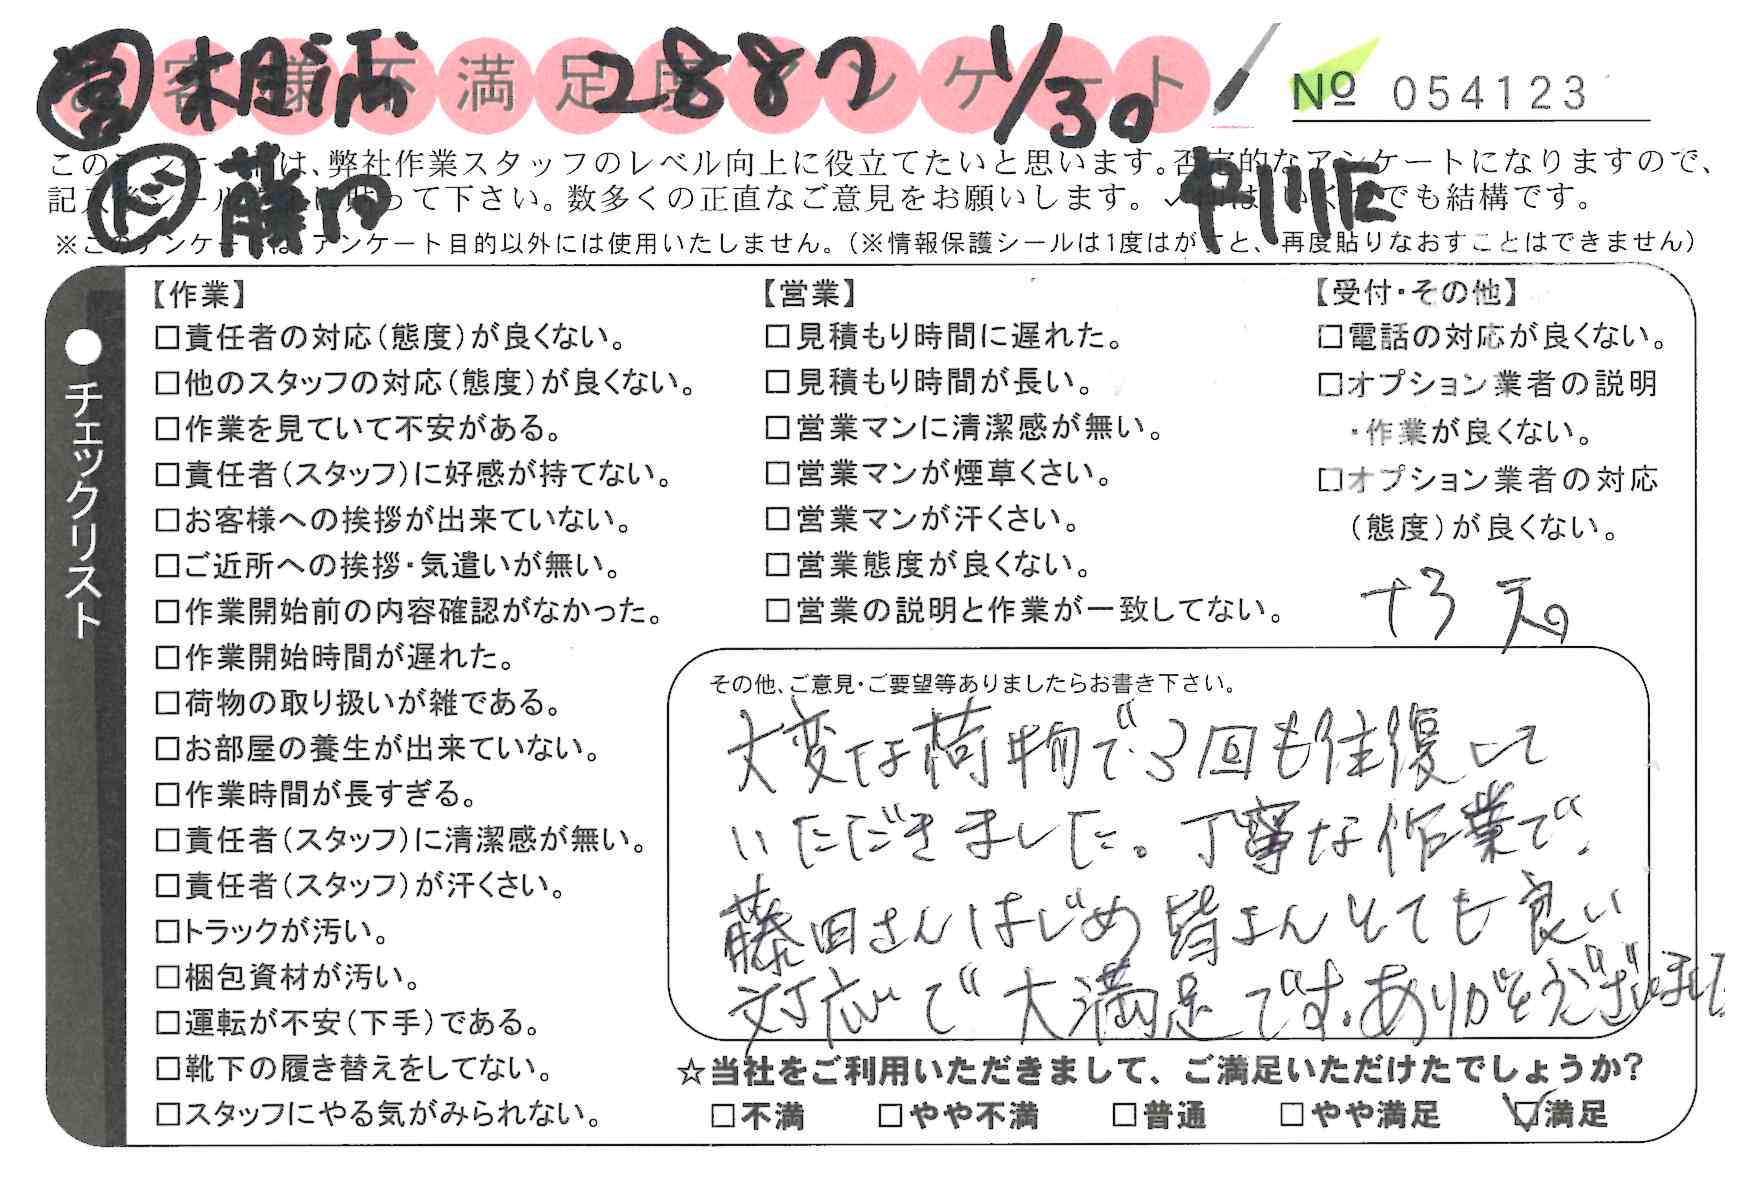 お客様不満足度アンケート
営 相浦 2887 1/30
№ 054123
このアンケートは、弊社作業スタッフのレベル向上に役立てたいと思います。否定的なアンケートになりますので、
記入後シールを貼って下さい。数多くの正直なご意見をお願いします。✓はいくつでも結構です。
ド 藤田
中川区
※このアンケートは、アンケート目的以外には使用いたしません。(※情報保護シールは1度はがすと、再度貼りなおすことはできません)
●チェックリスト
【作業】
□責任者の対応(態度)が良くない。
□他のスタッフの対応(態度)が良くない。
□作業を見ていて不安がある。
□責任者(スタッフ)に好感が持てない。
□お客様への挨拶が出来ていない。
□ご近所への挨拶・気遣いが無い。
□作業開始前の内容確認がなかった。
□作業開始時間が遅れた。
□荷物の取り扱いが雑である。
□お部屋の養生が出来ていない。
□作業時間が長すぎる。
□責任者(スタッフ)に清潔感が無い。
□責任者(スタッフ)が汗くさい。
□トラックが汚い。
□梱包資材が汚い。
□運転が不安(下手)である。
□靴下の履き替えをしてない。
□スタッフにやる気がみられない。
【営業】
□見積もり時間に遅れた。
□見積もり時間が長い。
□営業マンに清潔感が無い。
□営業マンが煙草くさい。
□営業マンが汗くさい。
□営業態度が良くない。
□営業の説明と作業が一致してない。
【受付・その他】
□電話の対応が良くない。
□オプション業者の説明
・作業が良くない。
□オプション業者の対応
(態度)が良くない。
その他、ご意見・ご要望等ありましたらお書き下さい。
大変な荷物で3回も往復して
いただきました。丁寧な作業で、
藤田さんはじめ皆さんとても良い
対応で大満足です。ありがとうございました
☆当社をご利用いただきまして、ご満足いただけたでしょうか?
□不満 □やや不満 □普通 □やや満足 ☑満足